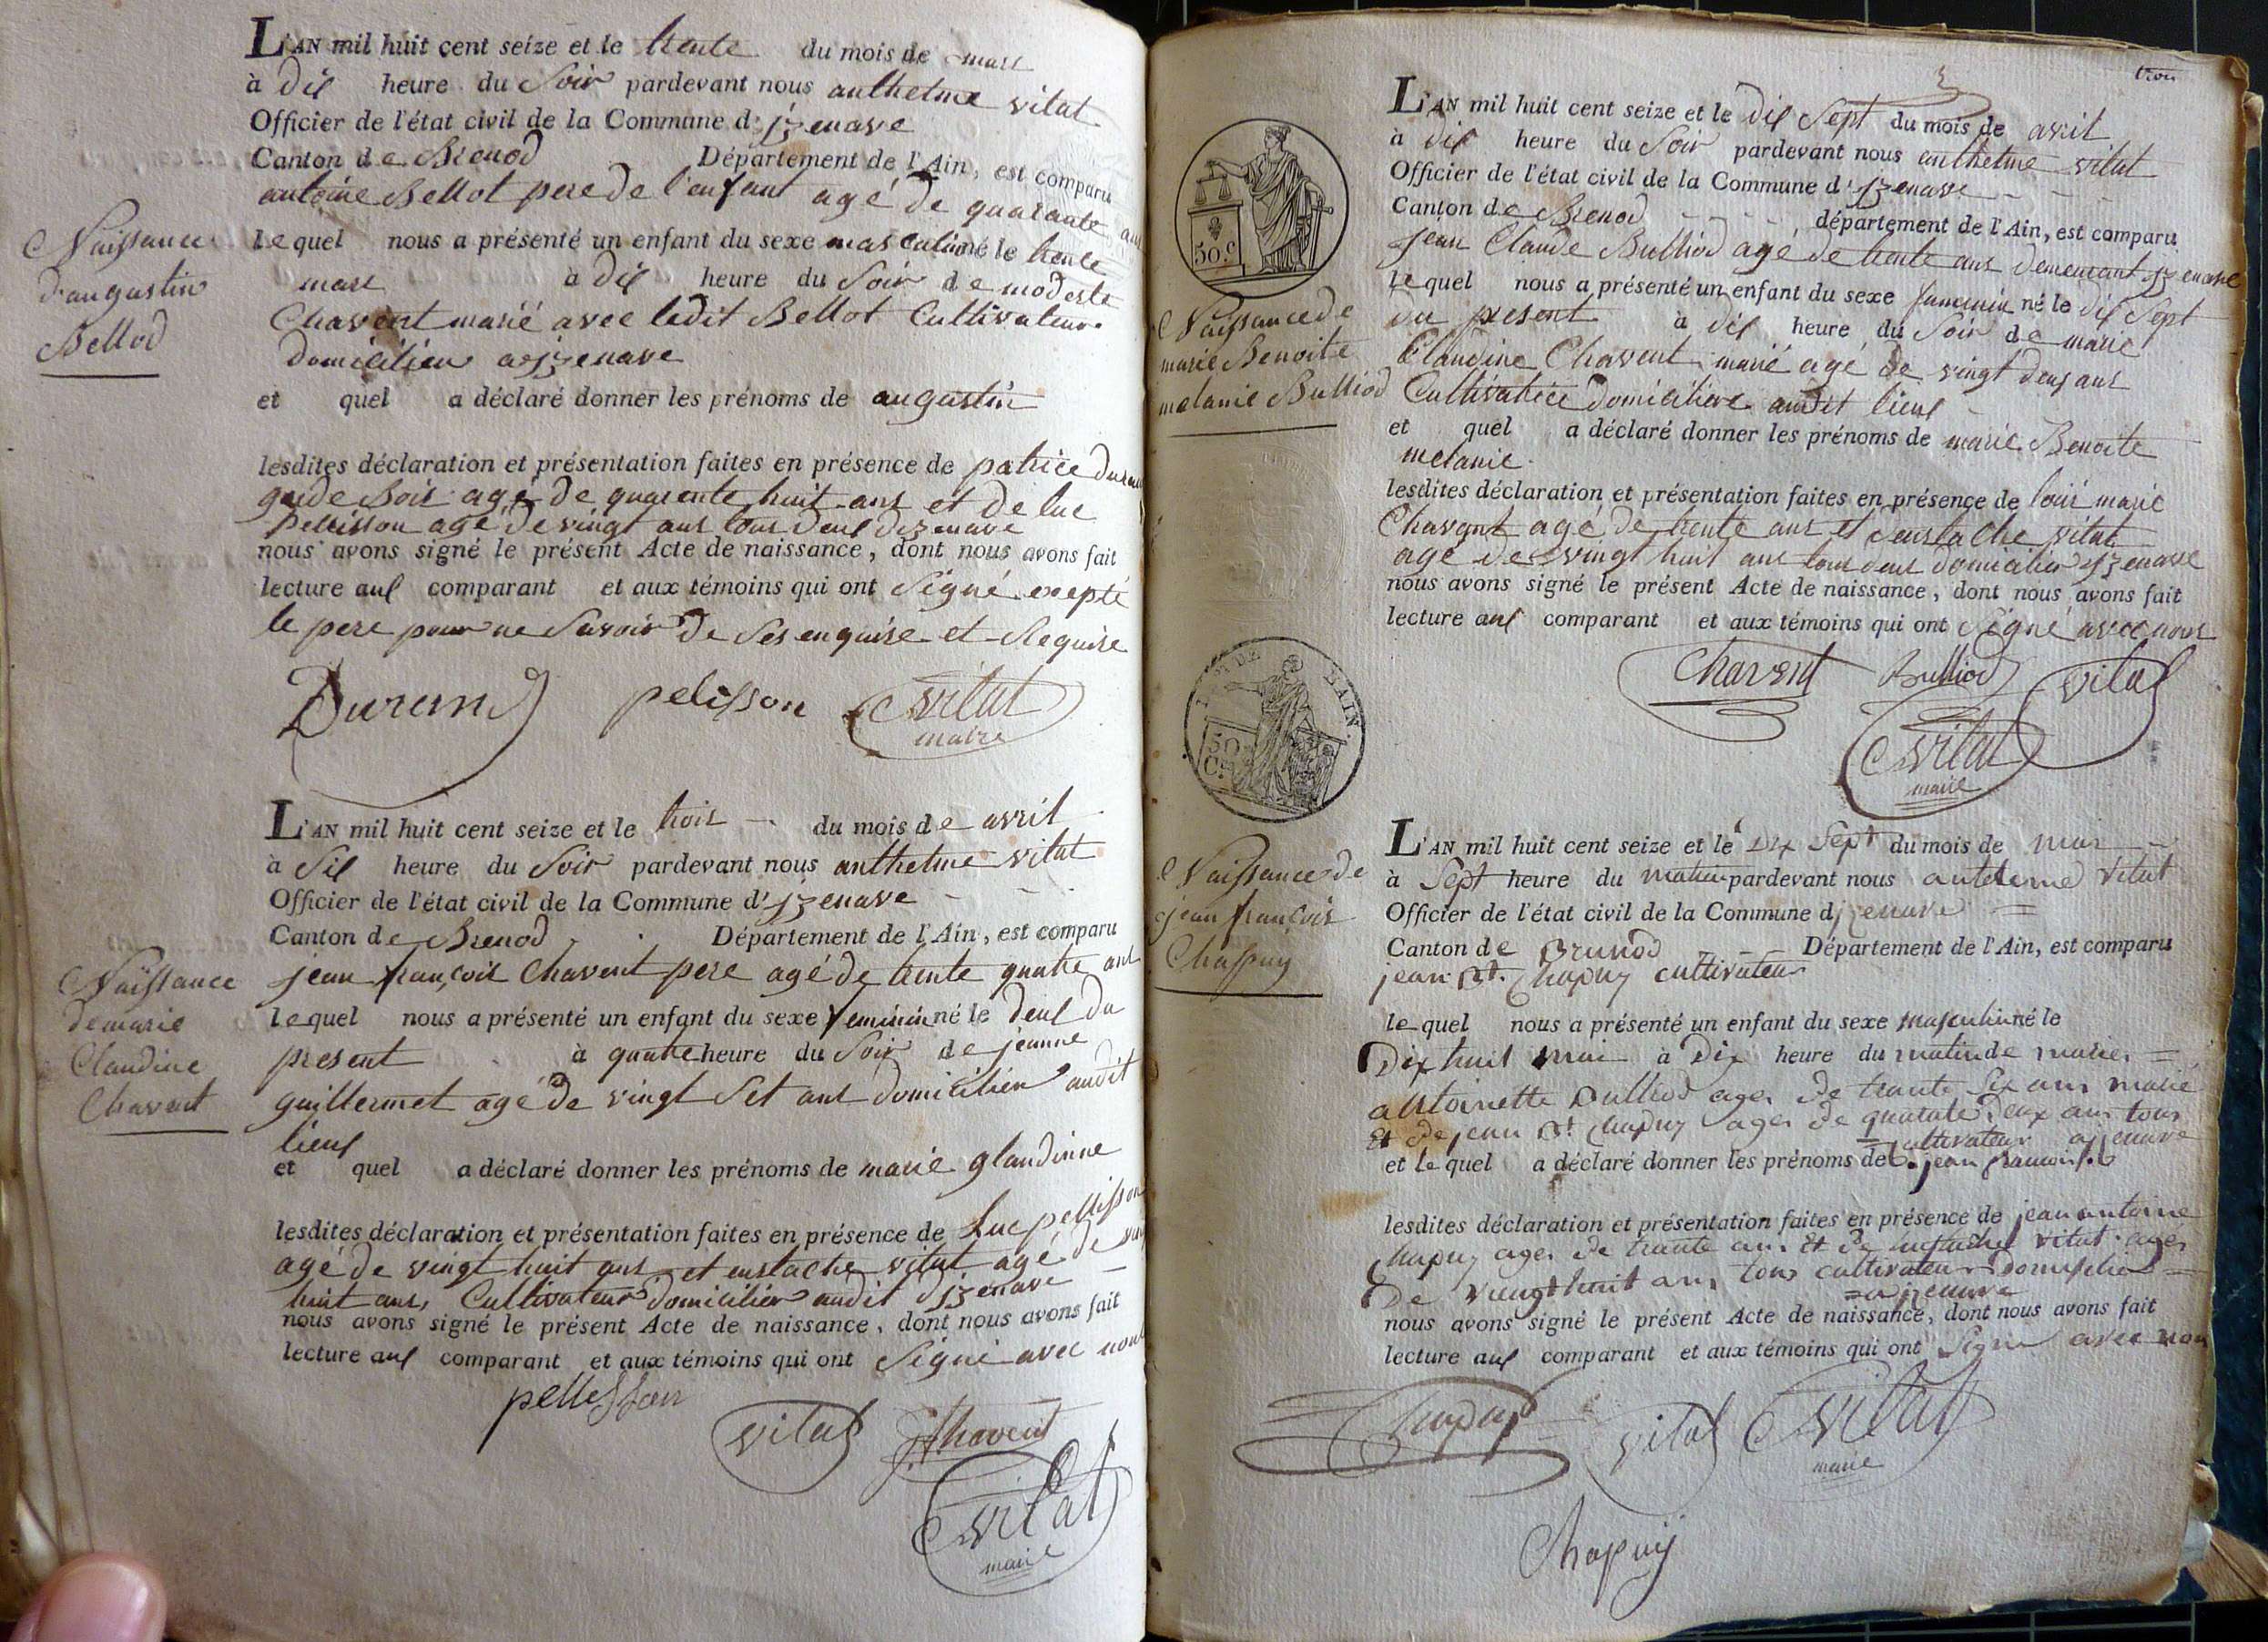 L'AN mil huit cent seize et le trente du mois de mars
à dix heure du Soir pardevant nous anthelme vitat
Officier de l'état civil de la Commune d'izenave
Canton de Brenod Département de l'Ain, est comparu
antoine Bellot pere de l'enfant agé de quarante ans
Lequel nous a présenté un enfant du sexe masculin né le trente
mars à dix heure du Soir de modeste
Chavent marié avec ledit Bellot Cultivateur
domicilien a izenave
et quel a déclaré donner les prénoms de augustin
lesdites déclaration et présentation faites en présence de patrice
garde Bois agé de quarente huit ans et de luc
pellisson agé de vingt ans tous deux dizenave
nous avons signé le présent Acte de naissance, dont nous avons fait
lecture aux comparant et aux témoins qui ont Signé excepté
le pere pour ne Savoir de Ses enquise et Requise
Naissance
d'augustin
Bellod
Durand pelisson vitat
maire
L'AN mil huit cent seize et le trois du mois de avril
à Six heure du Soir pardevant nous anthelme vitat
Officier de l'état civil de la Commune d'izenave
Canton de Brenod Département de l'Ain, est comparu
jean françois Chavent pere agé de trente quatre ans
lequel nous a présenté un enfant du sexe feminin né le deux du
present à quatre heure du Soir de jeanne
guillermet agé de vingt Set ans domicilien audit
lieux
et quel a déclaré donner les prénoms de marie glaudinne
lesdites déclaration et présentation faites en présence de Luc pellisson
agé de vingt huit ans et eustache vitat agé de
huit ans, Cultivateur domicilier audit dizenave
nous avons signé le présent Acte de naissance, dont nous avons fait
lecture aux comparant et aux témoins qui ont Signé avec nous
Naissance
de marie
Claudine
Chavent
pellesson
vitat Chavent
vitat
maire
trois
L'AN mil huit cent seize et le dix Sept du mois de avril
à dix heure du Soir pardevant nous anthelme vitat
Officier de l'état civil de la Commune d'izenave
Canton de Brenod département de l'Ain, est comparu
jean Claude Bulliod agé de trente ans demeurant izenave
Lequel nous a présenté un enfant du sexe femenin né le dix Sept
du present à dix heure du Soir de marie
Claudine Chavent marié agé de vingt deux ans
Cultivatrice domiciliere audit lieux
et quel a déclaré donner les prénoms de marie Benoite
melanie
lesdites déclaration et présentation faites en présence de louis marie
Chavant agé de trente ans et d'eustache vitat
agé de vingt huit ans tous deux domicilier izenave
nous avons signé le présent Acte de naissance, dont nous avons fait
lecture aux comparant et aux témoins qui ont Signé avec nous
50.C
Naissance de
marie Benoite
melanie Bulliod
DE L'AIN.
50
C.
Chavent Bulliod vitat
vitat
maire
L'AN mil huit cent seize et le Dix Sept du mois de mai
à Sept heure du matin pardevant nous antelme Vitat
Officier de l'état civil de la Commune d'izenave
Canton de Brunod Département de l'Ain, est comparu
jean Bt. Chapuy cultivateur
lequel nous a présenté un enfant du sexe masculin né le
Dix huit mai à Dix heure du matin de marie
antoinette Bulliod ages de trante Six ans marié
Et de jean Bt Chapuy ages de quarate deux ans tous
cultivateur a izenave
et lequel a déclaré donner les prénoms de jean francois
lesdites déclaration et présentation faites en présence de jean antoine
Chapuy ages de trante ans Et de Eustache vitat ages
De vieugt huit ans tous cultivateur domicilier
a izenave
nous avons signé le présent Acte de naissance, dont nous avons fait
lecture aux comparant et aux témoins qui ont Signe avec nou
Naissance de
jean françois
Chappuy
Chapuy vitat vitat
maire
Chapuy